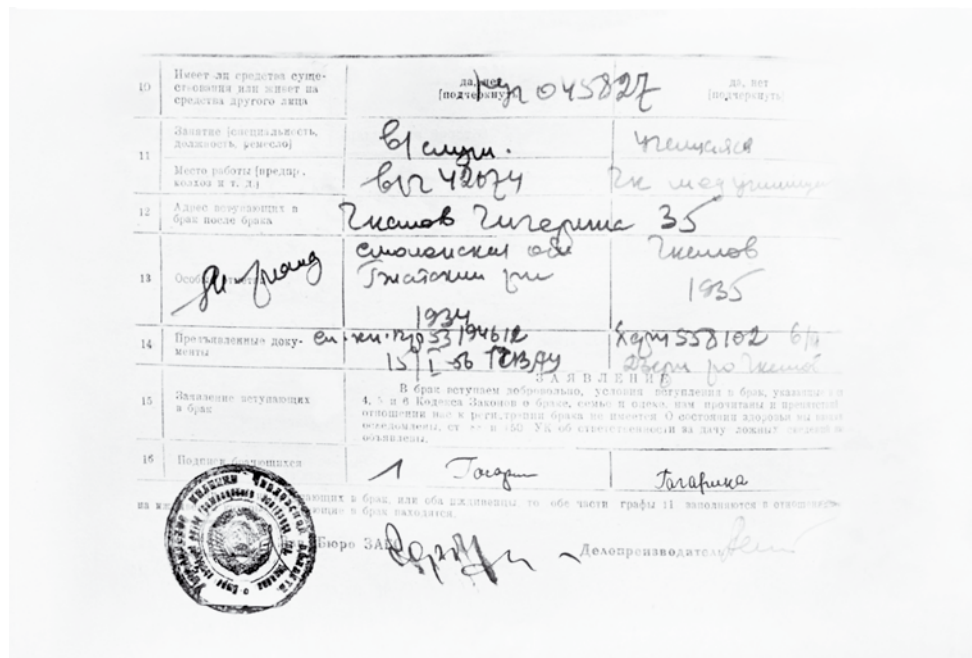 10 Имеет ли средства суще-
ствования или живет на
средства другого лица
да, нет
(подчеркнуть)
045827
да, нет
(подчеркнуть)
11 Занятие (специальность,
должность, ремесло)
в/служ.
учащаяся
Место работы (предпр.,
колхоз и т. д.)
в/ч
12 Адрес вступающих в
брак после брака
Чкалов Чичерина 35
13 Особые отметки
Смоленская обл
Гжатский р-н
1934
Чкалов
1935
14 Предъявленные доку-
менты
558102
15 Заявление вступающих
в брак
ЗАЯВЛЕНИЕ
В брак вступаем добровольно, условия вступления в брак, указанные
4, 5 и 6 Кодекса Законов о браке, семье и опеке, нам прочитаны и
отношении нас к регистрации брака не имеется. О состоянии здоровья мы
осведомлены, ст УК об ответственности за дачу ложных сведений
объявлены.
16 Подписи брачующихся
Гагарин
Гагарина
в брак, или оба иждивенцы, то обе части графы 11 заполняются в
в брак находятся.
Бюро ЗАГС
Делопроизводитель